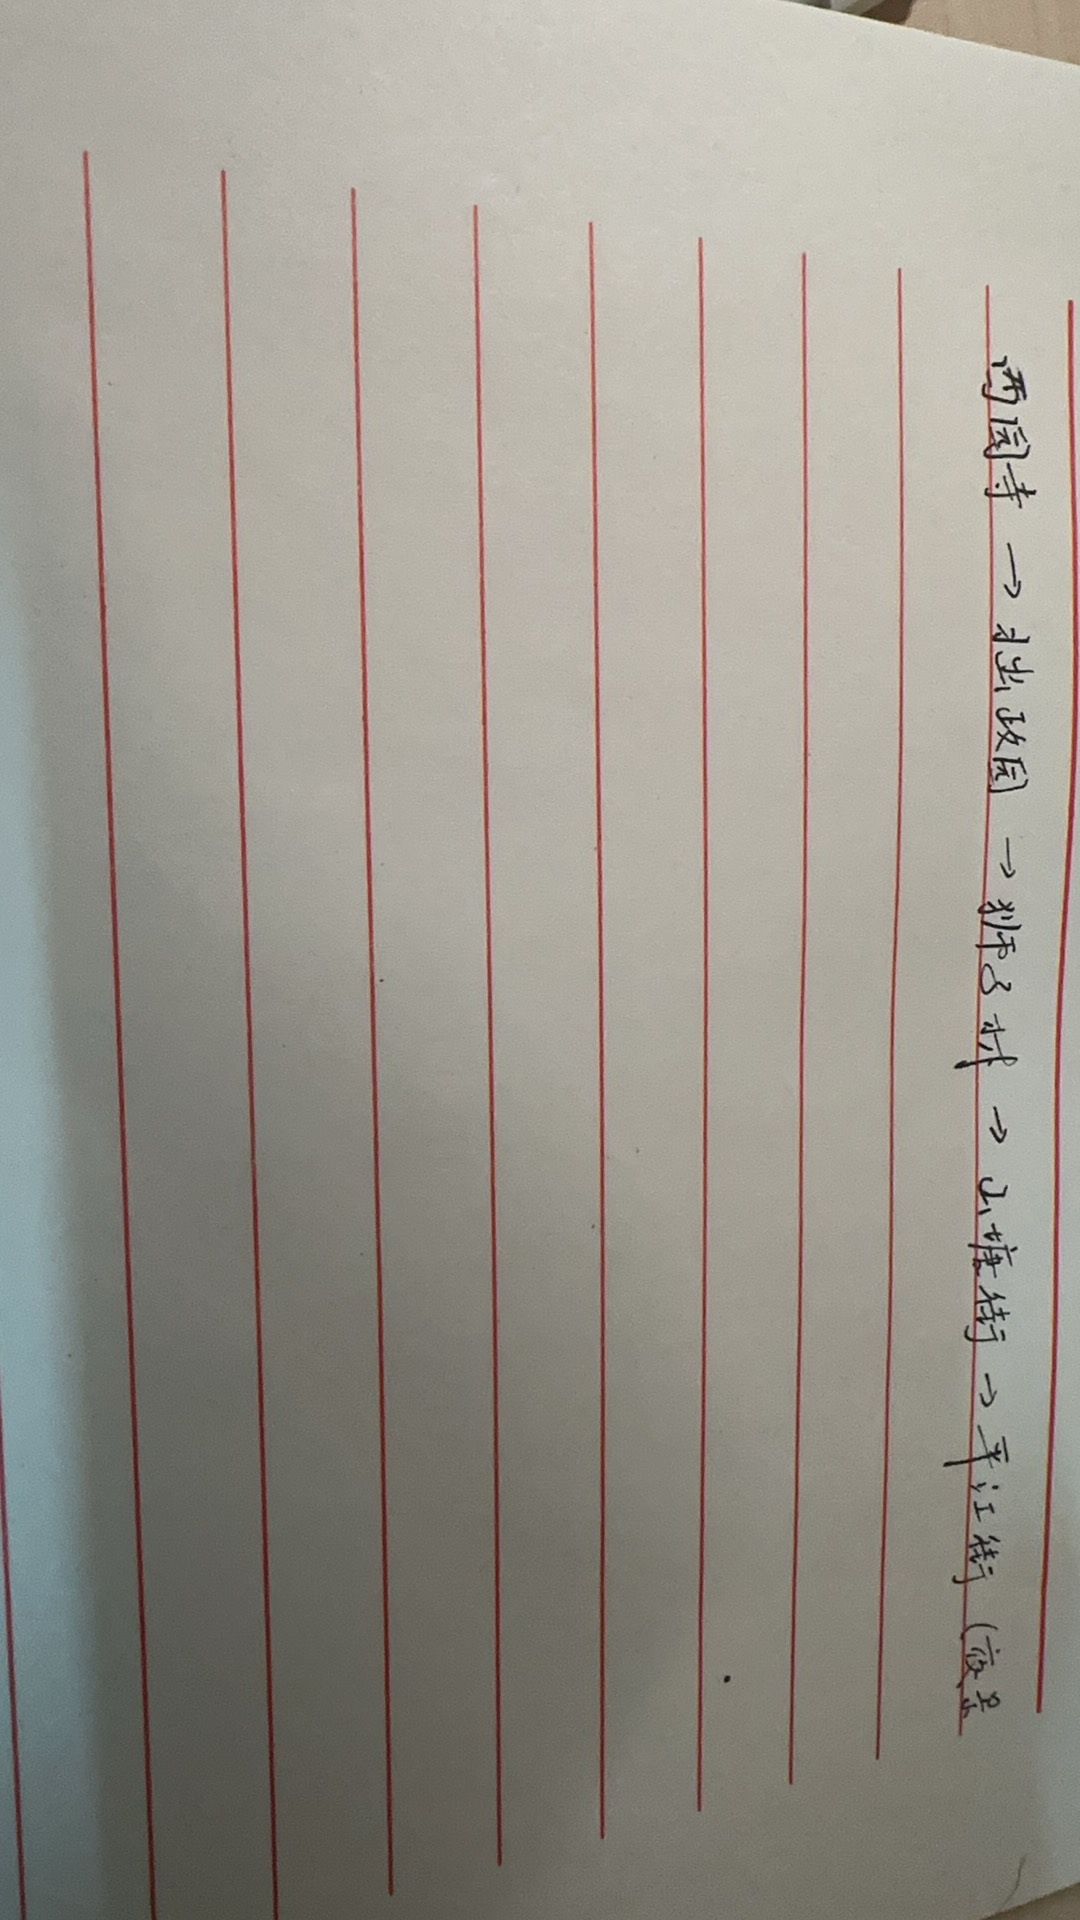 西园寺 → 拙政园 → 狮子林 → 山塘街 → 平江街 (夜景